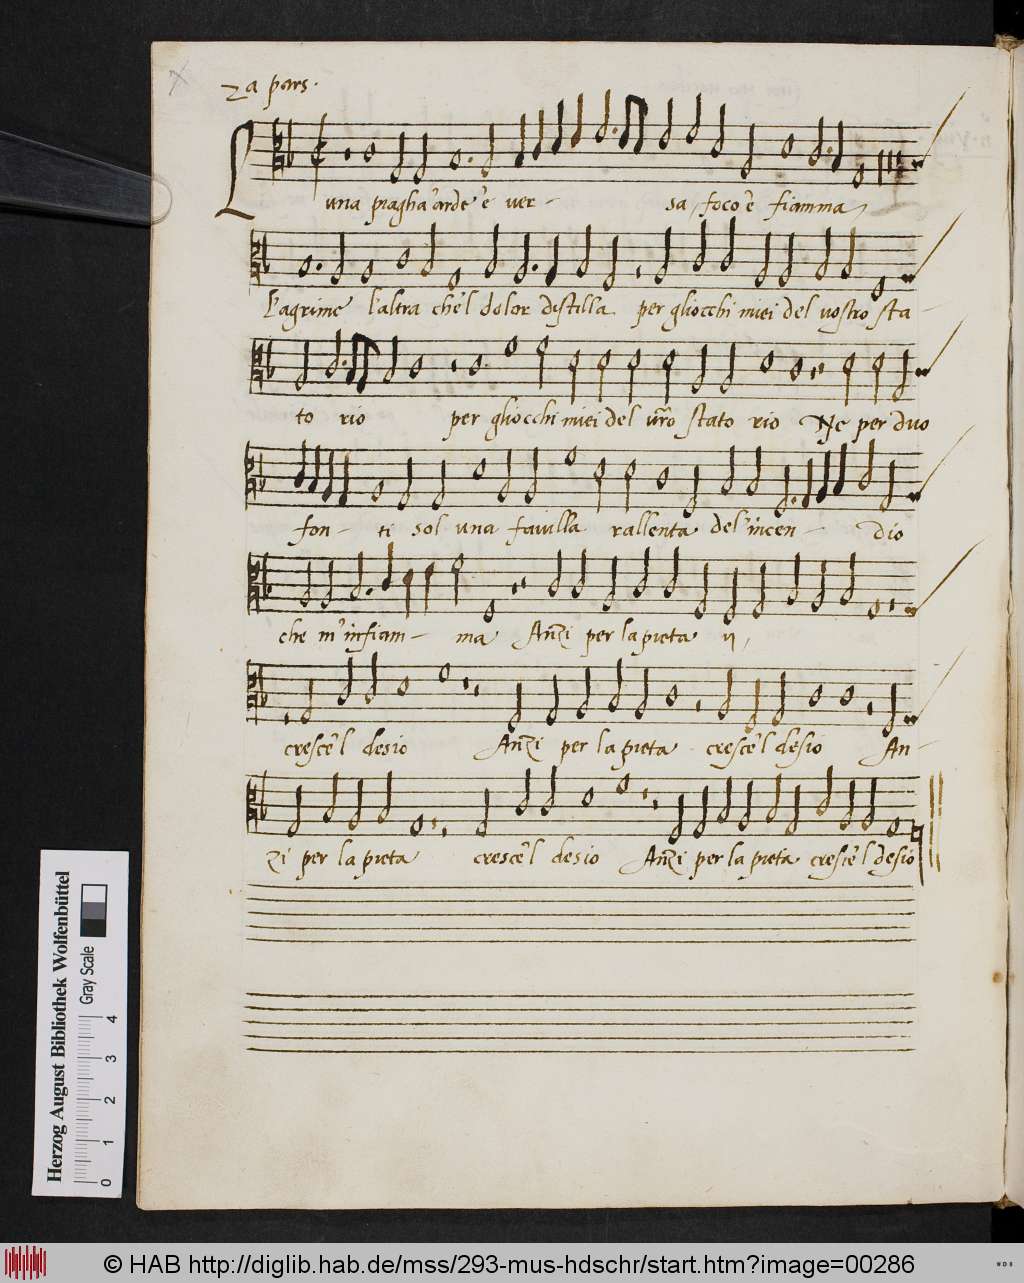 2a pars.
L una piagha'arde e ver - sa foco e fiamma
Lagrime l'altra che'l dolor distilla per gliocchi miei del vostro sta -
to rio per gliocchi miei del vr̃o stato rio Ne per duo
fon - ti sol una favilla rallenta del'incen - dio
che m'infiam - ma Anzi per la pieta ij
cresce'l desio Anzi per la pieta cresce'l desio An -
zi per la pieta cresce'l desio Anzi per la pieta cresce'l desio
Herzog August Bibliothek Wolfenbüttel
Gray Scale
0 1 2 3 4
© HAB http://diglib.hab.de/mss/293-mus-hdschr/start.htm?image=00286